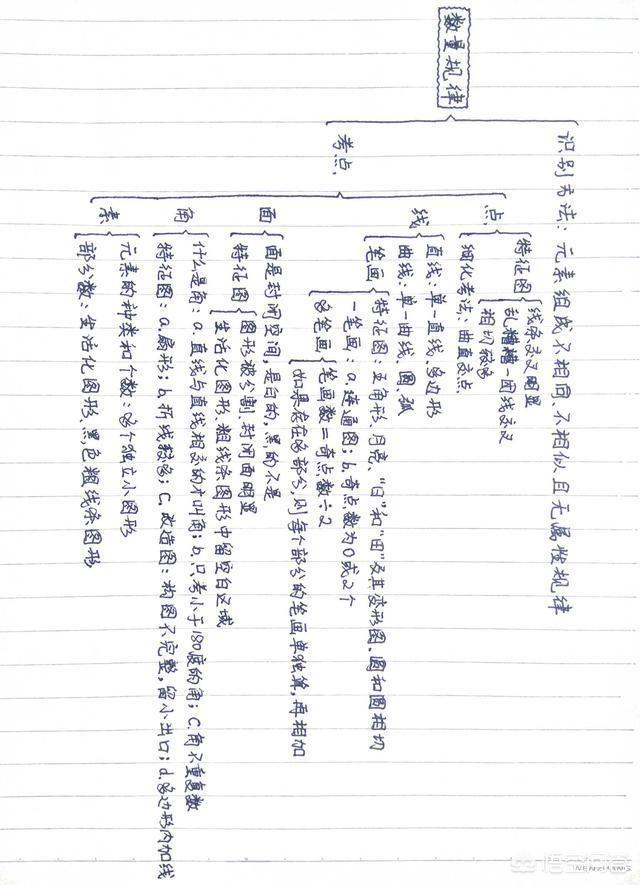 数量规律
识别方法：元素组成不相同、不相似且无属性规律
考点
点
特征图
线条交叉明显
乱糟糟一团线交叉
相切较多
细化考法：曲直交点
线
直线：单一直线、多边形
曲线：单一曲线、圆、弧
笔画
特征图：五角形、月亮、“日”和“田”及其变形图、圆和圆相切
一笔画：a.连通图；b.奇点数为0或2个
多笔画
笔画数＝奇点数÷2
如果存在多部分，则每个部分的笔画单独算，再相加
面
面是封闭空间，是白的，黑的不是
特征图
图形被分割、封闭面明显
生活化图形、粗线条图形中留空白区域
角
什么是角：a.直线与直线相交的才叫角；b.只考小于180度的角；C.角不重复数
特征图：a.扇形；b.折线较多；C.改造图：构图不完整，留小出口；d.多边形内加线
素
元素的种类和个数：多个独立小图形
部分数：生活化图形、黑色粗线条图形
悟空问答